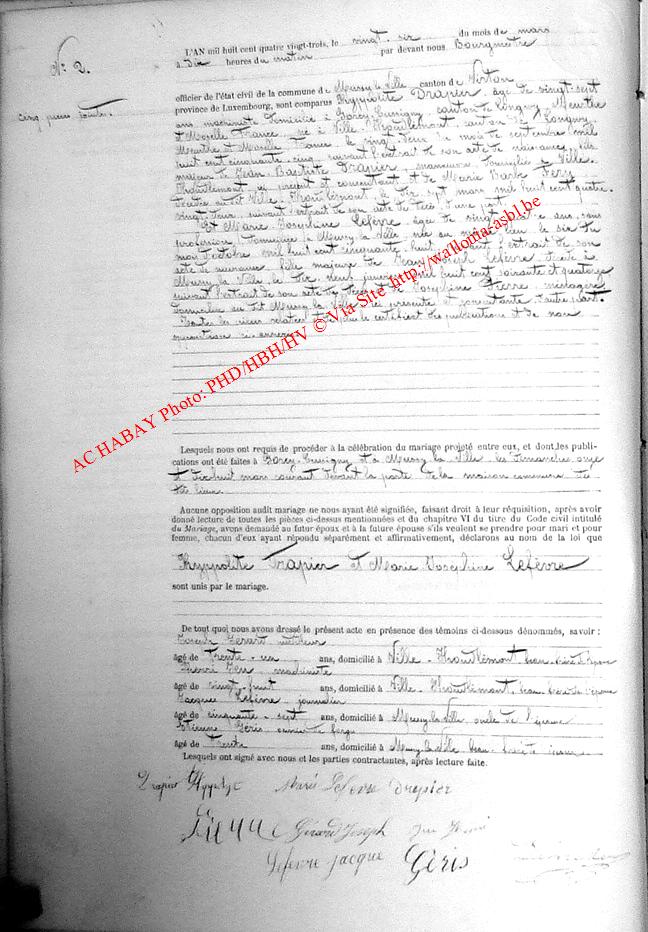 N° 2.
L'AN mil huit cent quatre vingt-trois, le vingt-six du mois de mars
à dix heures du matin par devant nous Bourgmestre
officier de l'état civil de la commune de Mussy-la-Ville canton de Virton
province de Luxembourg, sont comparus Hyppolite Drapier, âgé de vingt-sept
ans machiniste domicilié à canton de Longwy, Meurthe
et Moselle France, né à Ville-Houdlémont canton de Longwy,
Meurthe et Moselle France le vingt deux du mois de septembre mil
huit cent cinquante cinq suivant l'extrait de son acte de naissance, fils
majeur de Jean-Baptiste Drapier, manœuvre domicilié à Ville-
Houdlémont, ici présent et consentant et de Marie Barbe Féry
décédée au dit Ville-Houdlémont le dix sept mars mil huit cent quatre-
vingt-deux, suivant l'extrait de son acte de décès d'une part
Et Marie Josephine Lefèvre, âgée de vingt ans, sans
profession, domiciliée à Mussy-la-Ville née au même lieu le six du
mois d'octobre mil huit cent cinquante huit, suivant l'extrait de son
acte de naissance, fille majeure de Jean Joseph Lefèvre, décédé à
Mussy-la-Ville le dix neuf mil huit cent soixante et quatorze
suivant l'extrait de son acte de décès et de Josephine Pierre, ménagère
domiciliée au dit Mussy-la-Ville ici présente et consentante d'autre part.
Toutes les pièces relatées ainsi que le certificat des publications et de non
opposition ci-annexés
Lesquels nous ont requis de procéder à la célébration du mariage projeté entre eux, et dont les publi-
cations ont été faites à et à Mussy-la-Ville les dimanches onze
et dix-huit mars courant devant la porte de la maison commune des
dits lieux
Aucune opposition audit mariage ne nous ayant été signifiée, faisant droit à leur réquisition, après avoir
donné lecture de toutes les pièces ci-dessus mentionnées et du chapitre VI du titre du Code civil intitulé
du Mariage, avons demandé au futur époux et à la future épouse s'ils veulent se prendre pour mari et pour
femme, chacun d'eux ayant répondu séparément et affirmativement, déclarons au nom de la loi que
Hyppolite Drapier et Marie Josephine Lefèvre
sont unis par le mariage.
De tout quoi nous avons dressé le présent acte en présence des témoins ci-dessous dénommés, savoir :
Joseph Gérard
âgé de trente-un ans, domicilié à Ville-Houdlémont, beau-frère de l'époux
machiniste
âgé de vingt huit ans, domicilié à Ville-Houdlémont, beau-frère de l'époux
Jacques Lefèvre journalier
âgé de cinquante-sept ans, domicilié à Mussy-la-Ville, oncle de l'épouse
Etienne Géris ouvrier de forge
âgé de trente ans, domicilié à Mussy-la-Ville beau-frère de l'épouse
Lesquels ont signé avec nous et les parties contractantes, après lecture faite.
Drapier Hyppolyte Marie Lefevre Drapier
Gérard Joseph
Lefevre jacque Géris
AC HABAY Photo: PHD/HBH/HV © Via-Site http://wallonia-asbl.be